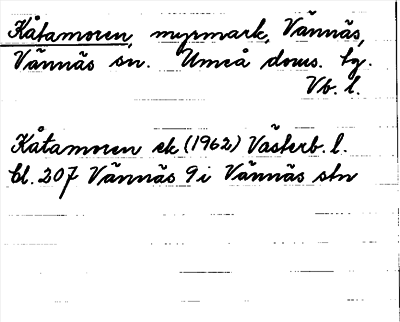 Kåtamoren, myrmark, Vännäs,
Vännäs sn. Umeå doms. tg.
Vb. l.
Kåtamoren ek (1962) Västerb. l.
bl. 207 Vännäs 9 i Vännäs stn